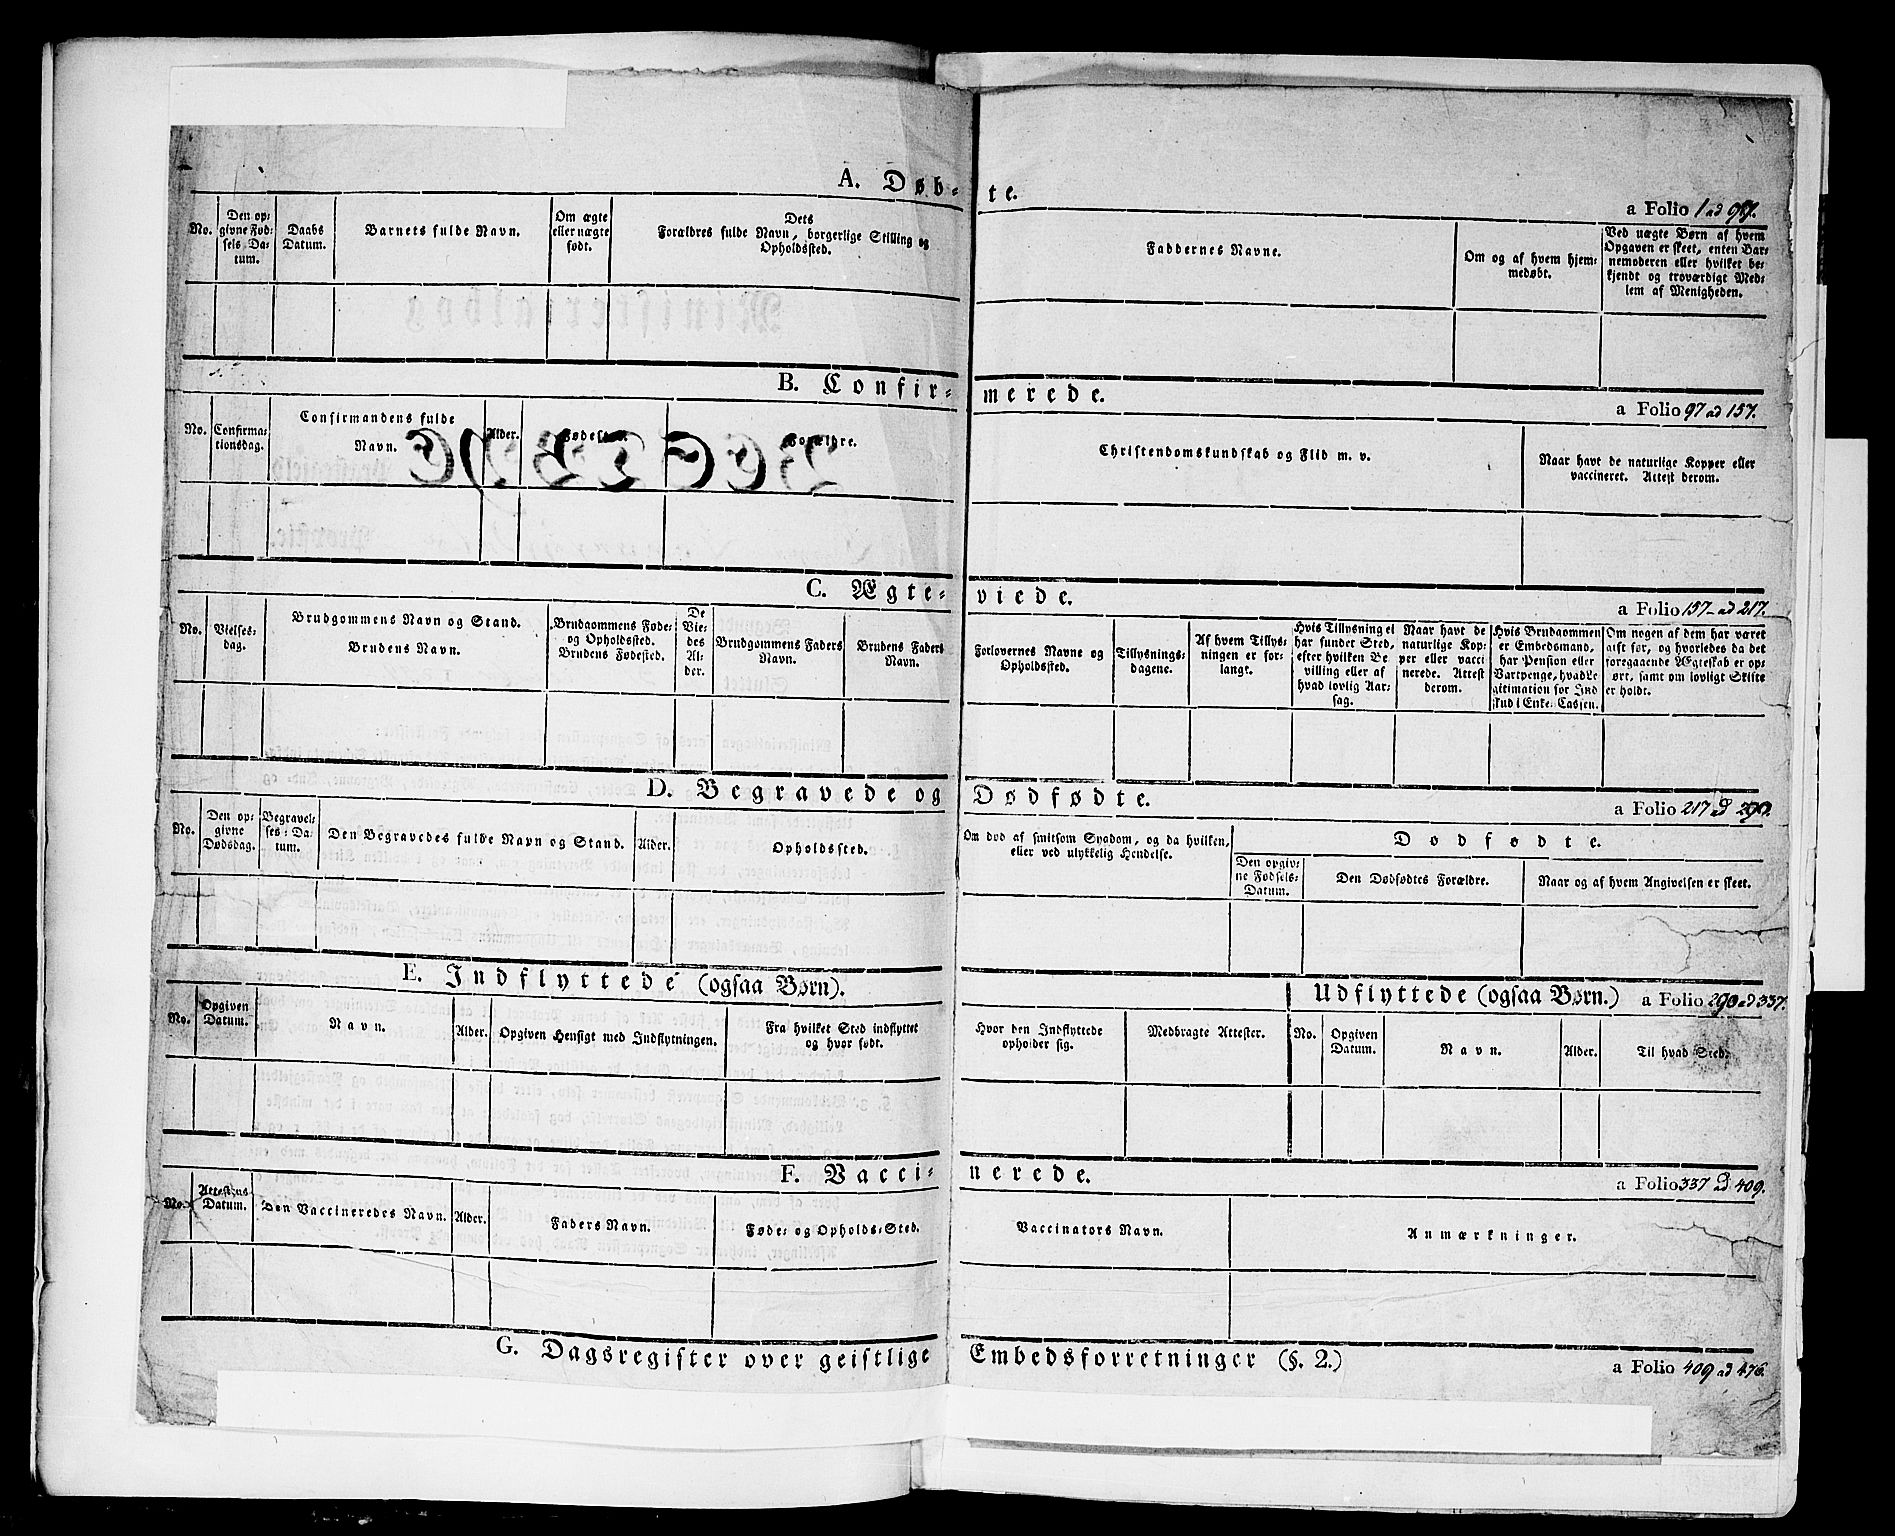 A. Døb- te.
a Folio 1 ad 97.
No.
Den op-
givne Fød-
sels Da-
tum.
Daabs
Datum.
Barnets fulde Navn.
Om ægte
eller uægte
født.
Dets
Forældres fulde Navn, borgerlige Stilling og
Opholdssted.
Faddernes Navne.
Om og af hvem hjem-
medøbt.
Ved uægte Børn af hvem
Opgaven er skeet, enten Bar-
nemoderen eller hvilket be-
kjendt og troværdigt Med-
lem af Menigheden.
B. Confir- merede.
a Folio 97 ad 157.
No.
Confirma-
tionsdag.
Confirmandens fulde
Navn.
Alder.
Fødested.
Forældre.
Christendomskundskab og Flid m. v.
Naar havt de naturlige Kopper eller
vaccineret. Attest derom.
C. Ægte- viede.
a Folio 157- ad 217.
No.
Vielses-
dag.
Brudgommens Navn og Stand.
Brudens Navn.
Brudgommens Føde-
og Opholdssted.
Brudens Fødested.
De
Vie-
des
Al-
der.
Brudgommens Faders
Navn.
Brudens Faders
Navn.
Forlovernes Navne og
Opholdssted.
Tillysnings-
dagene.
Af hvem Tillys-
ningen er for-
langt.
Hvis Tillysning ei
har fundet Sted,
efter hvilken Be
villing eller af
hvad lovlig Aar-
sag.
Naar havt de
naturlige Kop-
per eller vacci
nerede. Attest
derom.
Hvis Brudgommen
er Embedsmand,
har Pension eller
Vartpenge, hvad Le
gitimation for Ind
skud i Enke-Cassen.
Om nogen af dem har været
gift før, og hvorledes da det
foregaaende Ægteskab er op-
ørt, samt om lovligt Skifte
er holdt.
D. Begravede og Dødfødte.
a Folio 217 ad 290.
No.
Den op-
givne
Dødsdag.
Begravel-
ses-Da-
tum.
Den Begravedes fulde Navn og Stand.
Alder.
Opholdssted.
Om død af smitsom Sygdom, og da hvilken,
eller ved ulykkelig Hendelse.
Dødfødte.
Den opgiv-
ne Fødsels-
Datum.
Den Dødfødtes Forældre.
Naar og af hvem Angivelsen er skeet.
E. Indflyttede (ogsaa Børn).
Udflyttede (ogsaa Børn.) a Folio 290 ad 337.
No.
Opgiven
Datum.
Navn.
Alder.
Opgiven Hensigt med Indflytningen.
Fra hvilket Sted indflyttet
og hvor født.
Hvor den Indflyttede
opholder sig.
Medbragte Attester.
No.
Opgiven
Datum.
Navn.
Alder.
Til hvad Sted.
F. Vacci- nerede.
a Folio 337 ad 409.
No.
Attestens
Datum.
Den Vaccineredes Navn.
Alder.
Faders Navn.
Føde- og Opholds-Sted.
Vaccinators Navn.
Anmærkninger.
G. Dagsregister over geistlige Embedsforretninger (§. 2.)
a Folio 409 ad 476.